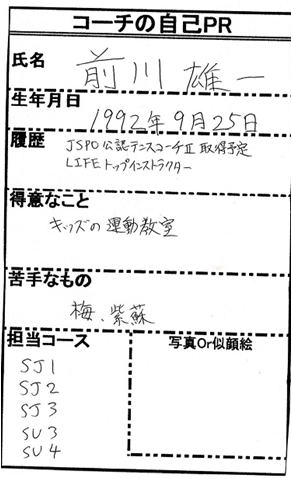 コーチの自己PR
氏名
前川 雄一
生年月日
1992年9月25日
履歴
JSPO公認テニスコーチⅡ 取得予定
LIFEトップインストラクター
得意なこと
キッズの運動教室
苦手なもの
梅、紫蘇
担当コース
写真Or似顔絵
SJ1
SJ2
SJ3
SU3
SU4